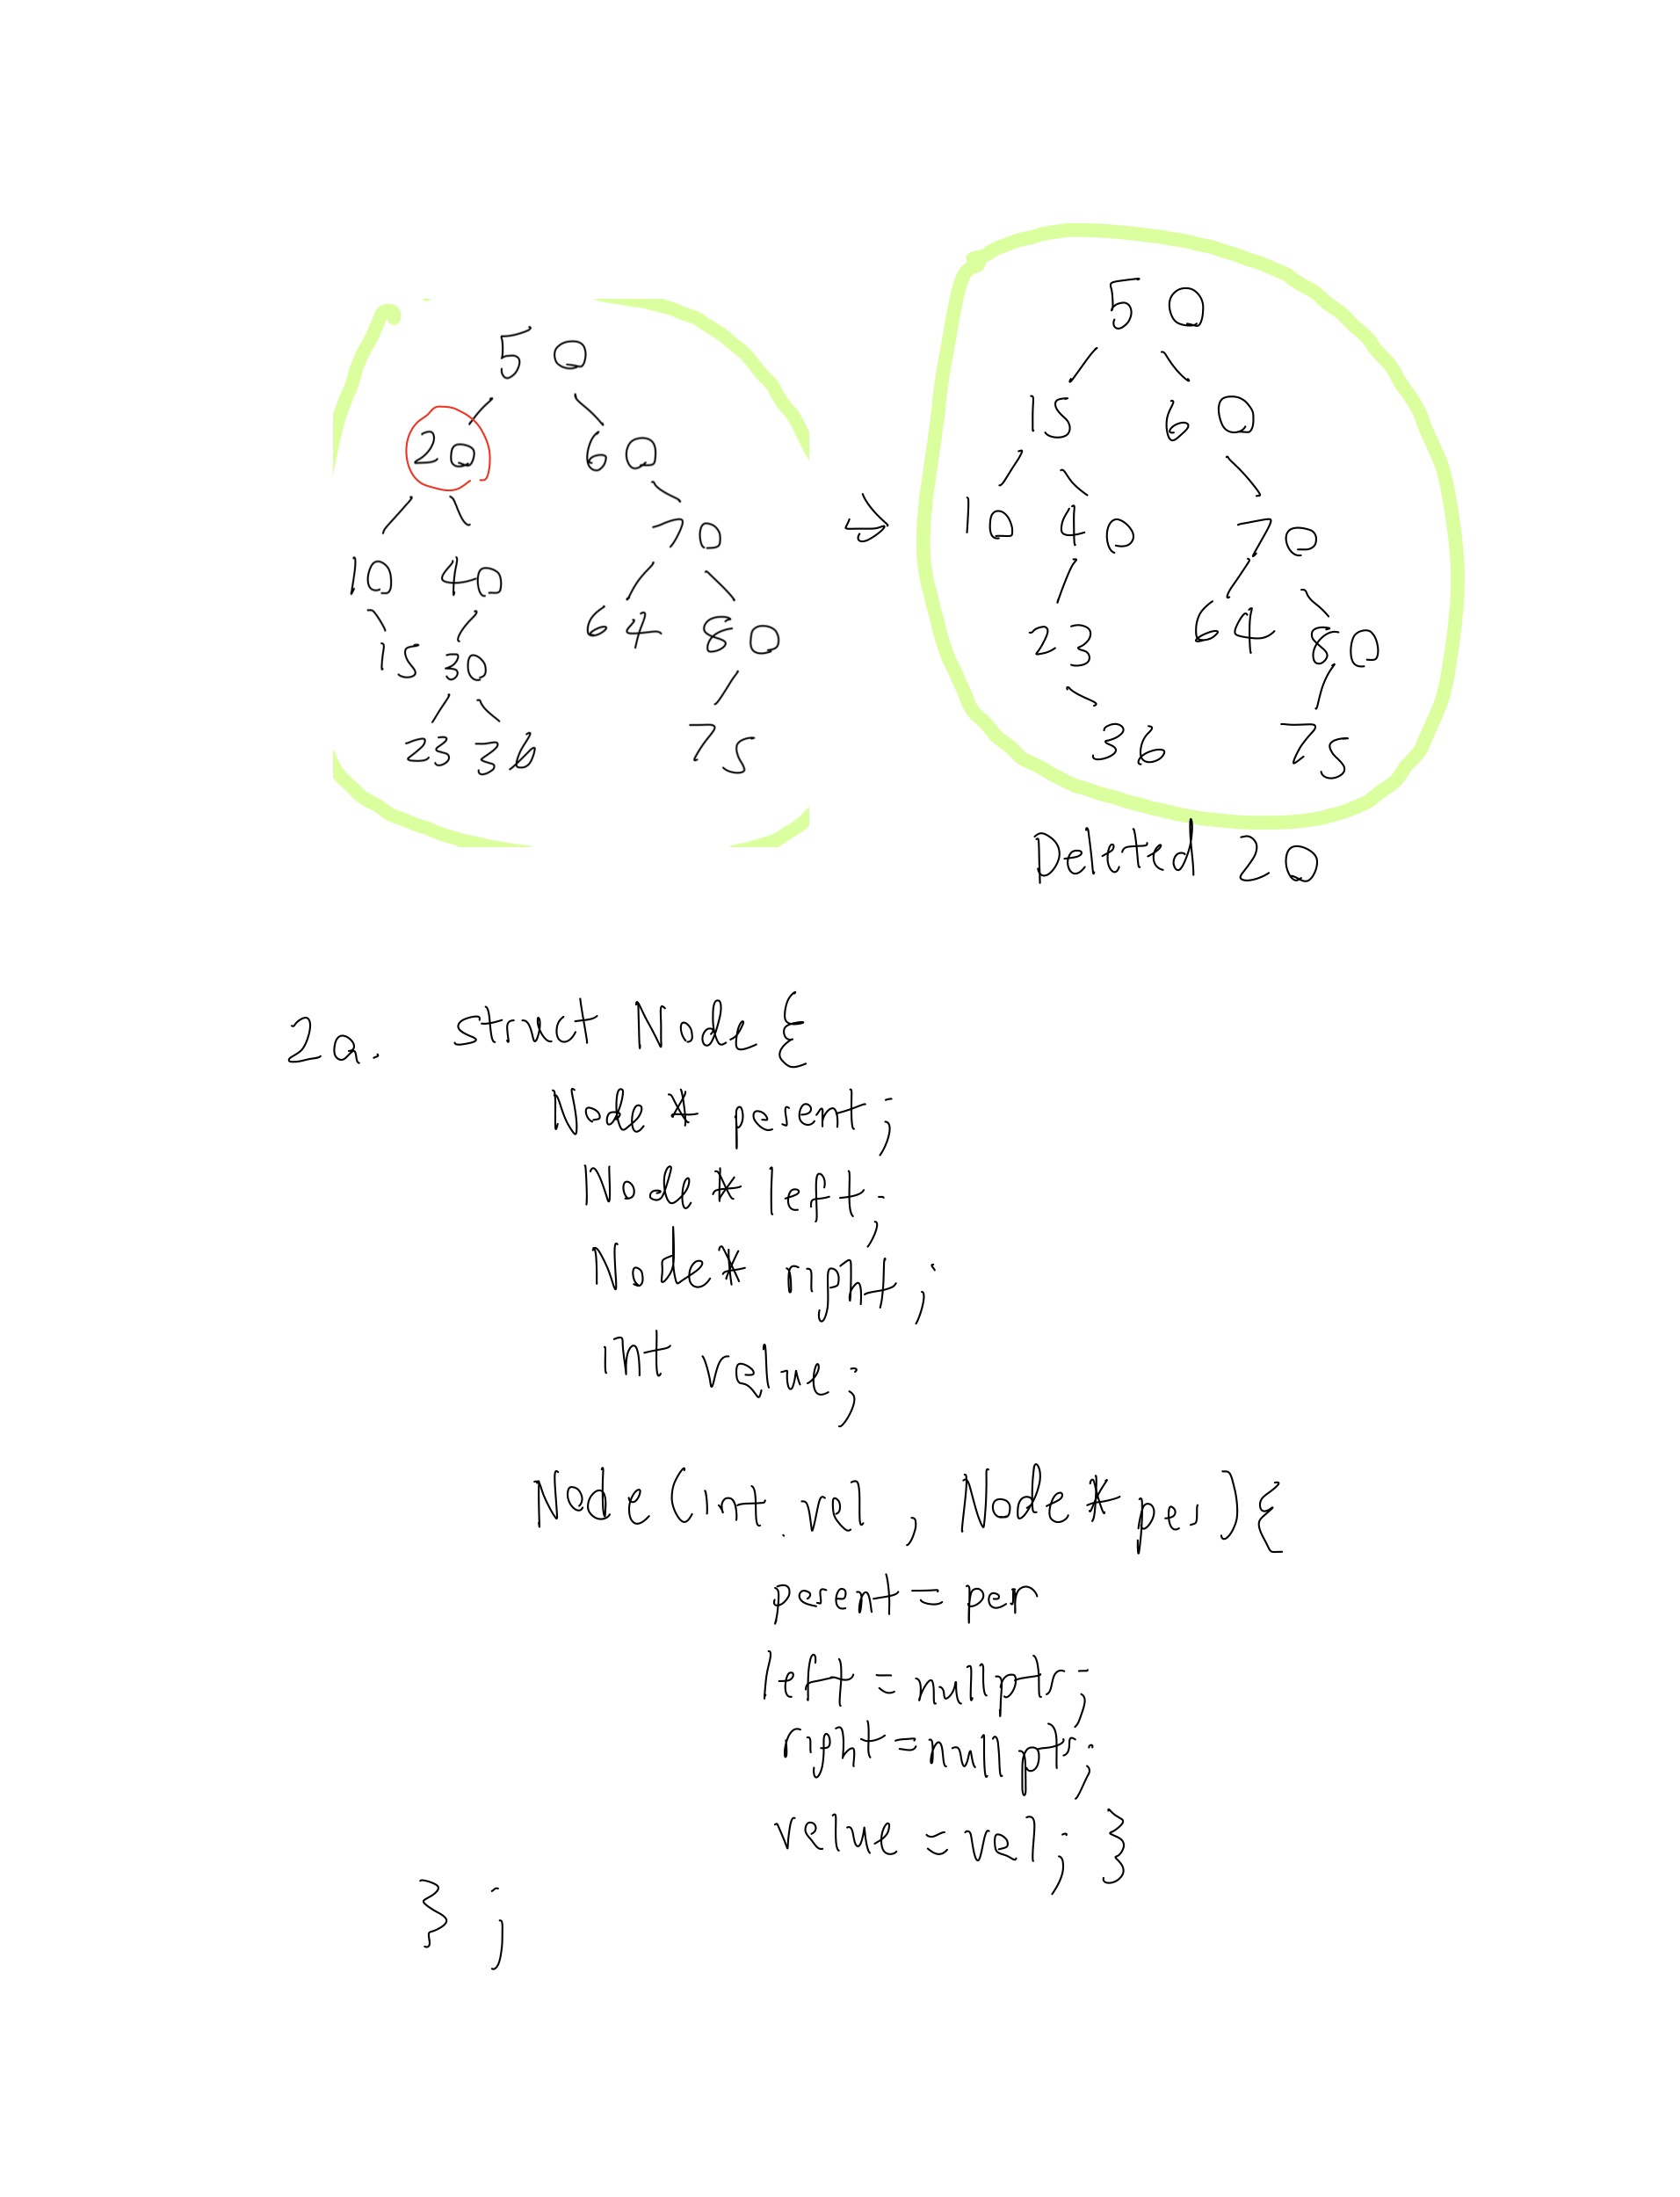 50
20 60
10 40 70
15 30 64 80
23 36 75
50
15 60
10 40 70
23 64 80
36 75
Deleted 20
2a. struct Node {
Node * parent;
Node * left;
Node* right;
int value;
Node (int val, Node* par) {
parent = par
left = nullptr;
right = nullptr;
value = val; }
};